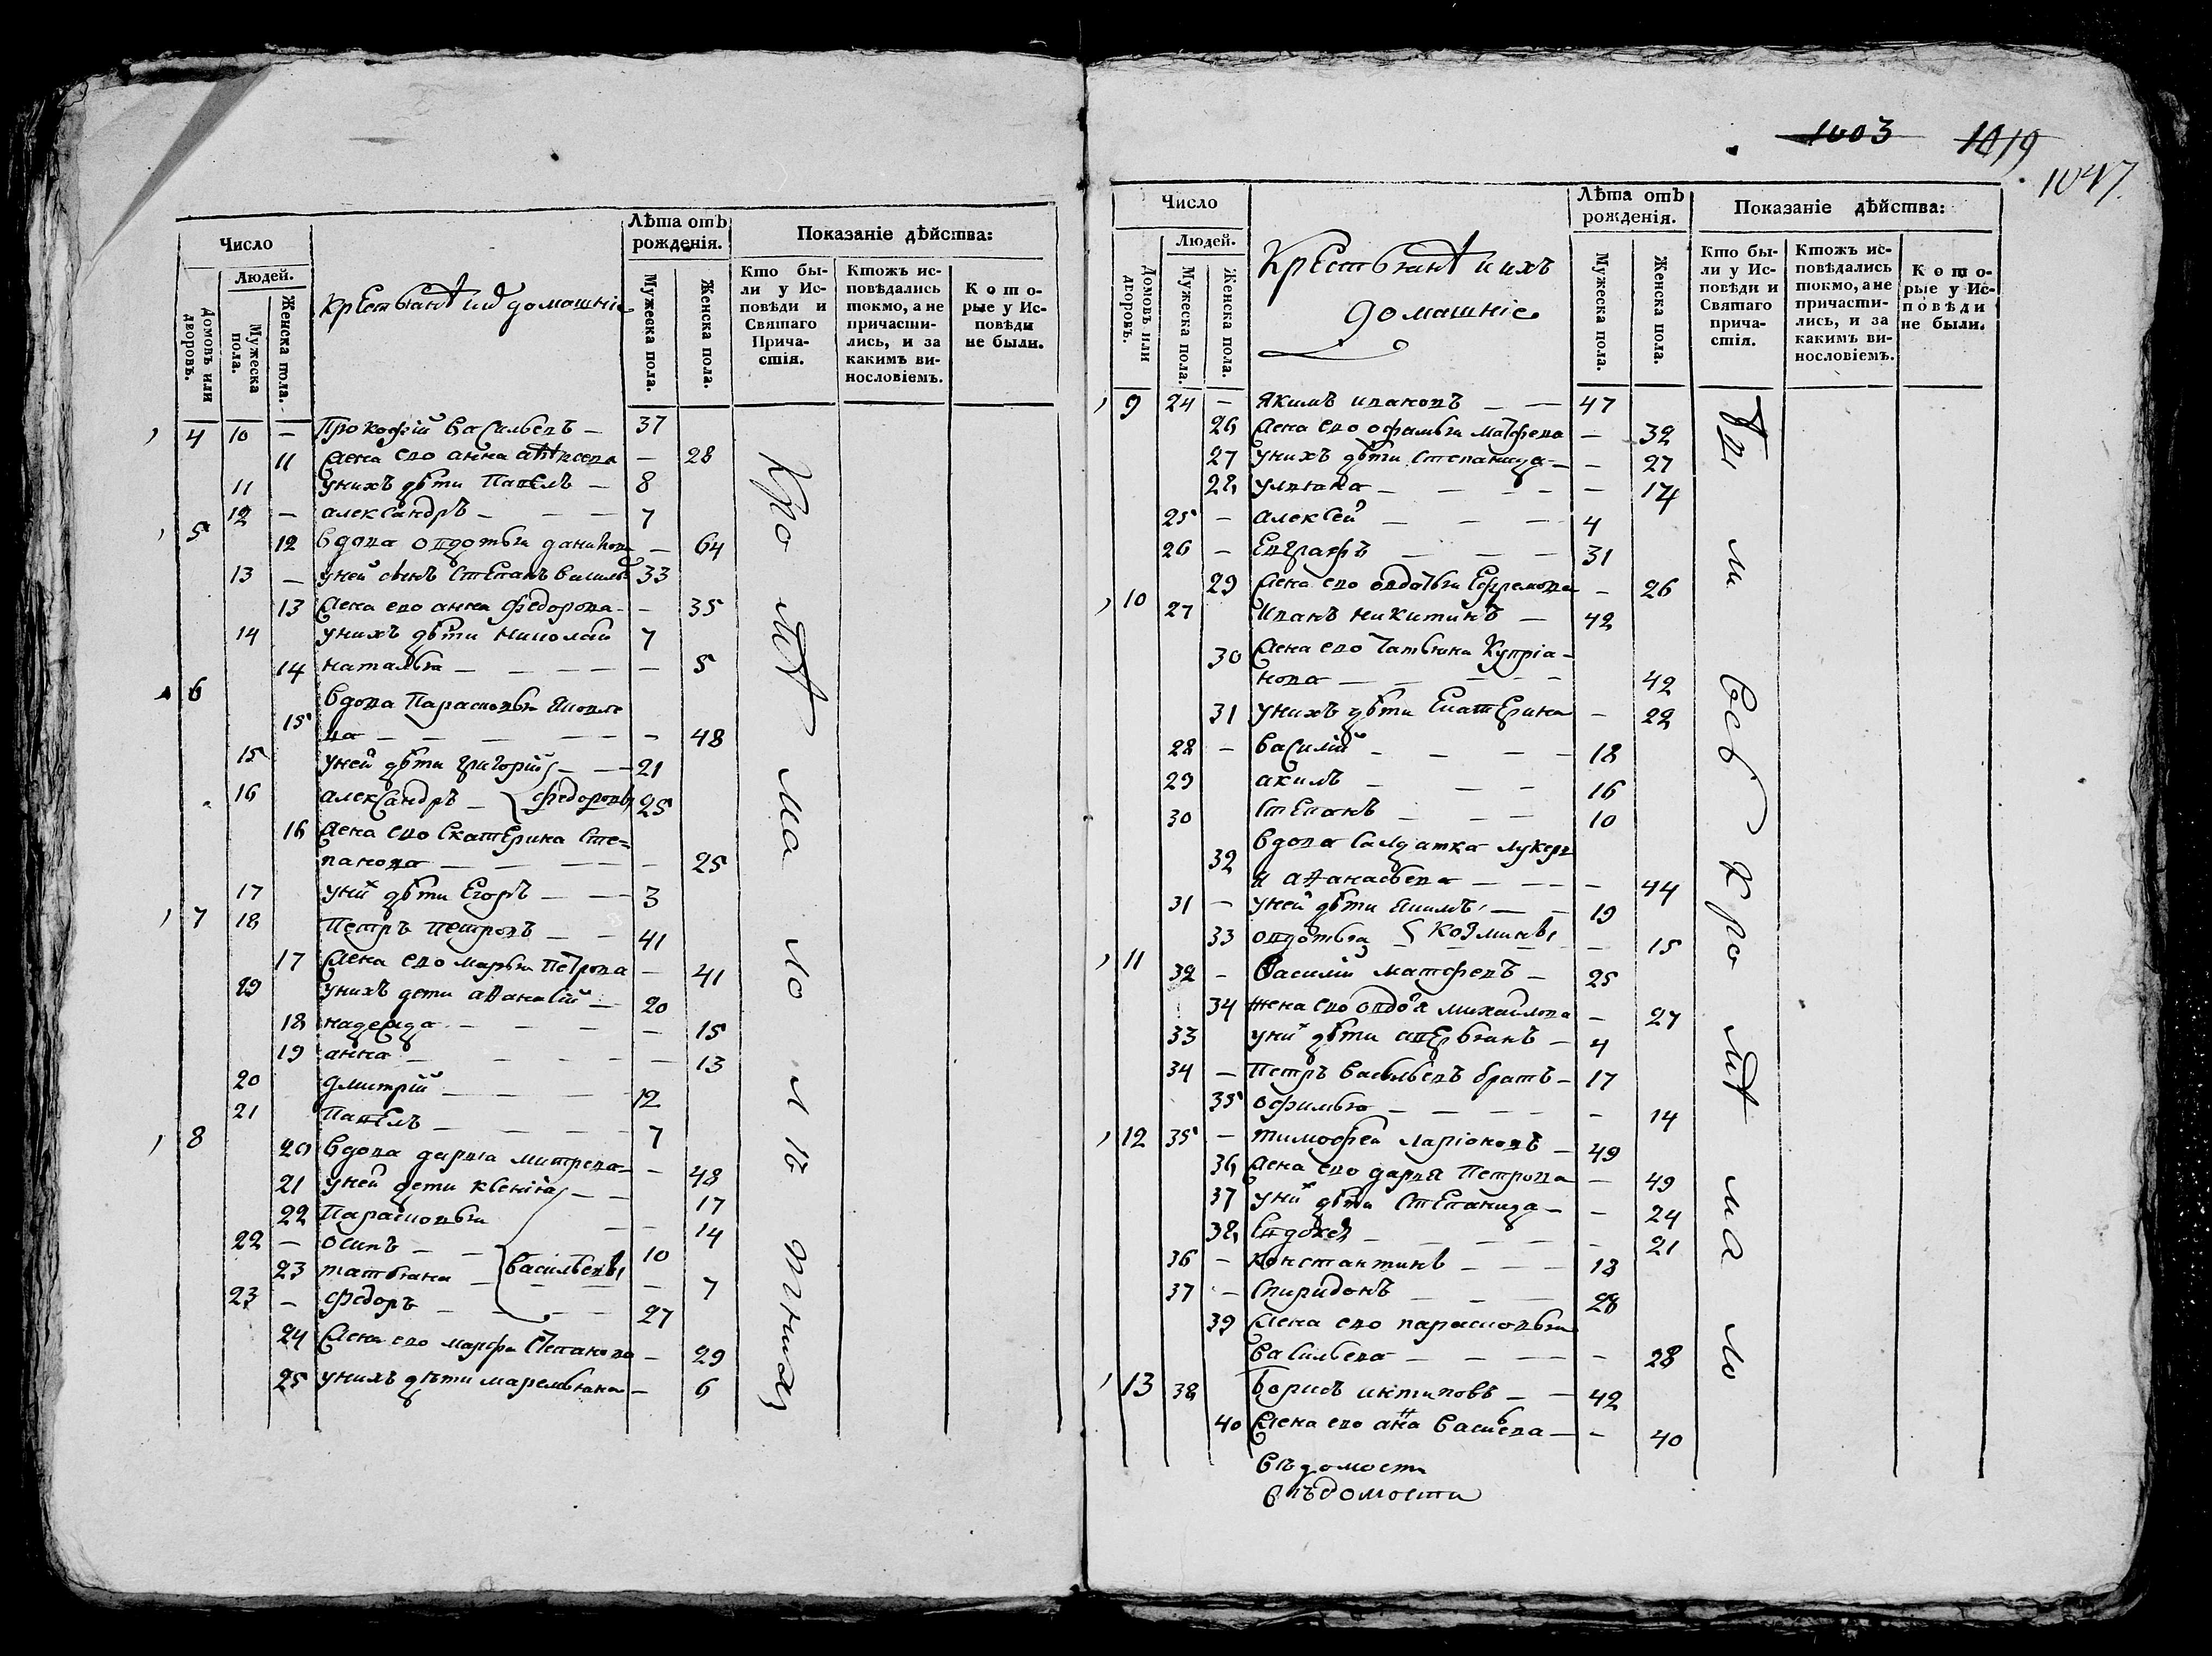 Число
Людей.
Домовъ или дворовъ.
Мужеска пола.
Женска пола.
крестьянѣ ихъ домашніе
Лѣта отъ рожденія.
Мужеска пола.
Женска пола.
Показаніе дѣйства:
Кто бы-
ли у Ис-
повѣди и
Святаго
Прича-
стія.
Ктожъ ис-
повѣдались
токмо, а не
причасти-
лись, и за
какимъ ви-
нословіемъ.
Кото-
рые у Ис-
повѣди
не были.
4 10 – Прокофій Васильевъ – 37
11 Жена ево анна – 28
11 Унихъ дѣти Павелъ – 8
12 – александръ – – – 7
5 12 Вдова овдотья данилова – 64
13 – Уней сынъ Степанъ 33
13 Жена ево анна Федорова – – 35
14 Унихъ дѣти николай 7
14 наталья – – – – – 5
6 Вдова Парасковья Яковле
15 ва – – – – – – 48
15 Уней дѣти григорій – – 21
16 александръ – Федоровы 25
16 Жена ево Екатерина Сте=
панова – – – – – 25
17 Уних дѣти Егоръ – – 3
7 18 Петръ петровъ – – 41
17 Жена ево марья Петрова – 41
19 Унихъ дети аѳанасій – 20
18 надежда – – – – – 15
19 анна – – – – – 13
20 дмитрій – – – 12
21 Павелъ – – – – 7
8 20 Вдова дарья митрева – – 48
21 Уней дети ксенія – – 17
22 Парасковья – – 14
22 – осипъ – – Васильевы 10
23 татьяна – – – – – 7
23 – Федоръ – – – – 27
24 Жена ево марфа Степанова – 29
25 унихъ дѣти маремьяна – 6
1003 1019
1047
Число
Людей.
Домовъ или дворовъ.
Мужеска пола.
Женска пола.
Крестьянѣ и ихъ
домашніе
Лѣта отъ рожденія.
Мужеска пола.
Женска пола.
Показаніе дѣйства:
Кто бы-
ли у Ис-
повѣди и
Святаго
прича-
стія.
Ктожъ ис-
повѣдались
токмо, а не
причасти-
лись, и за
какимъ ви-
нословіемъ.
Кото-
рые у Ис-
повѣди
не были.
9 24 – Якимъ ивановъ – – 47
26 Жена ево офимья Матфева – 32
27 Унихъ дѣти Степанида – – 27
28 ульяна – – – – – 14
25 – алексей – – – 4
26 – Евграфъ – – – 31
29 Жена ево овдотья Ефремова – 26
10 27 Иванъ никитинъ – 42
30 Жена ево Татьяна Купріа-
нова – – – – 42
31 Унихъ дѣти Екатерина – 22
28 – Василій – – – – 18
29 акимъ – – – 16
30 Степанъ – – – 10
32 Вдова Салдатка лукерь
я аѳанасьева – – – – 44
31 – Уней дѣти Якимъ – – 19
33 овдотья Козмины – 15
11 32 – Василій матфевъ – 25
34 жена ево овдоѣя михайлова – 27
33 уних дѣти аверьянъ – 4
34 – Петръ Васильевъ братъ – 17
35 офимья – – – – – 14
12 35 – тимофей ларіоновъ – 49
36 Жена ево дарья Петрова – 49
37 уних дѣти Степанида – – 24
38 Евдокея – – – – – 21
36 – Константинъ – – – 18
37 – Спиридонъ – – – 28
39 Жена ево парасковья
Васильева – – – – – 28
13 38 Борисъ антиповъ – – 42
40 Жена ево анна Васильева – – 40
Вѣдомости
вѣдомости